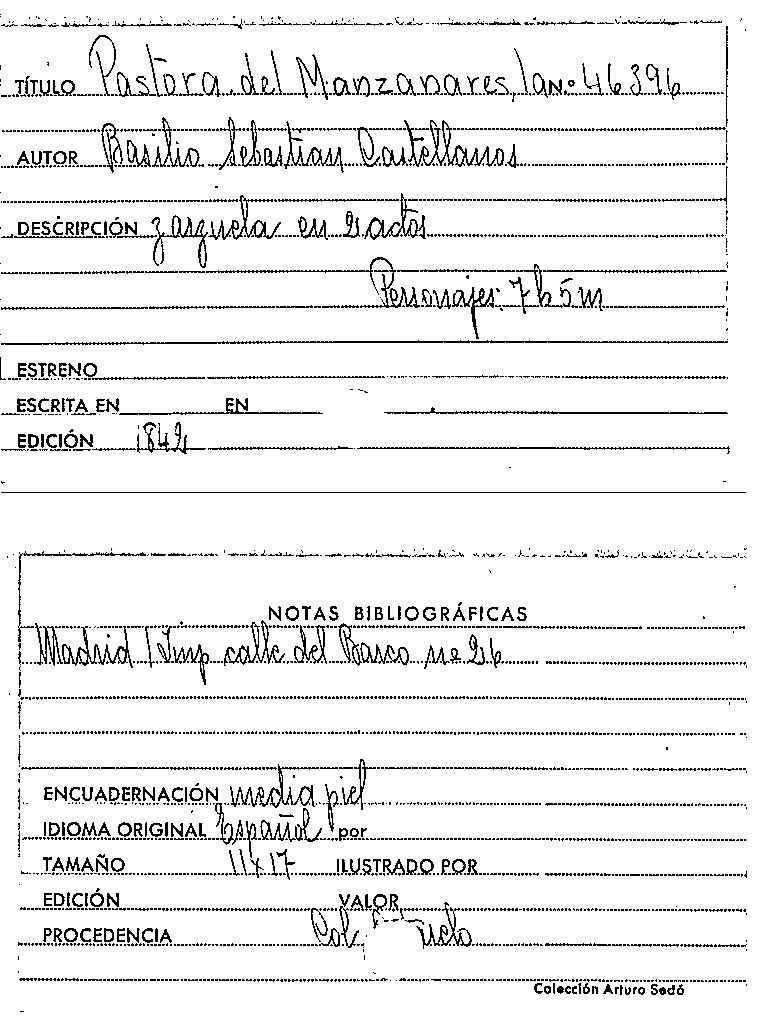 TÍTULO Pastora del Manzanares, la N.º 46396
AUTOR Basilio Sebastian Castellanos
DESCRIPCIÓN zarzuela en 2 actos
Personajes: 7 h 5 m
ESTRENO
ESCRITA EN EN
EDICIÓN 1842
NOTAS BIBLIOGRÁFICAS
Madrid / Imp calle del Barco nº 26
ENCUADERNACIÓN media piel
IDIOMA ORIGINAL Español por
TAMAÑO 11x17 ILUSTRADO POR
EDICIÓN VALOR
PROCEDENCIA Col
Colección Arturo Sedó